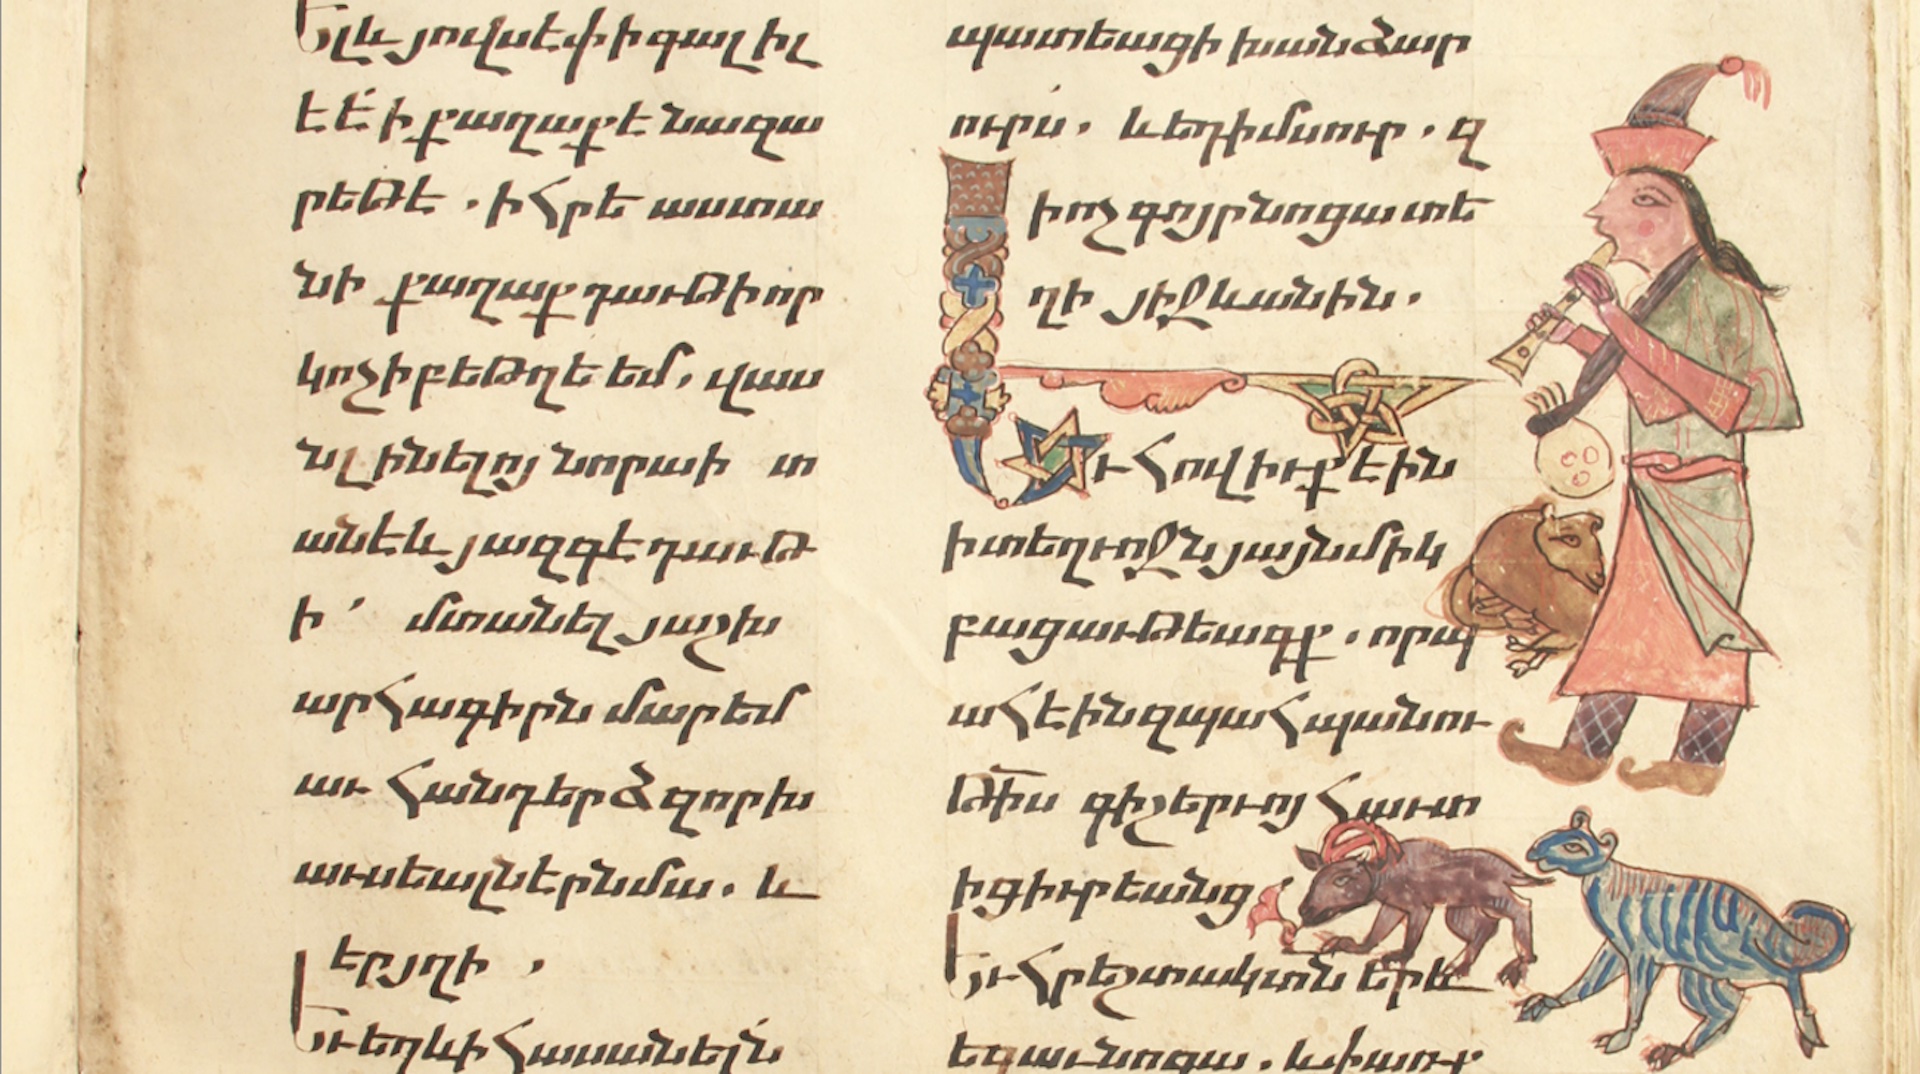 Ել և յովսէփ ի գալիլ
էէ ի քաղաքէ նազա
րեթէ . ի հրե աստա
նի քաղաք դաւթի որ
կոչի բեթղէեմ. վաս
ն լինելոյ նորա ի տ
անէ և յազգէ դաւթ
ի ՝ մտանել յաշխ
արհագիրն մարեմ
աւ հանդերձ զոր խ
աւսեալն էր նմա. և
էր յղի .
Եւ եղև ի հասանելն
պատեաց ի խանձար
ուրս. և եդ ի մսուր. զ
ի ոչ գոյր նոցա տե
ղի յիջևանին.
Եւ հովիւք էին
ի տեղւոջն յայնմիկ
բացաւթեագք. որ պ
ահէին զպահպանու
թիս գիշերւոյ հաւտ
ից իւրեանց
Եւ հրեշտակ տն երև
եցաւ նոցա. և փառք